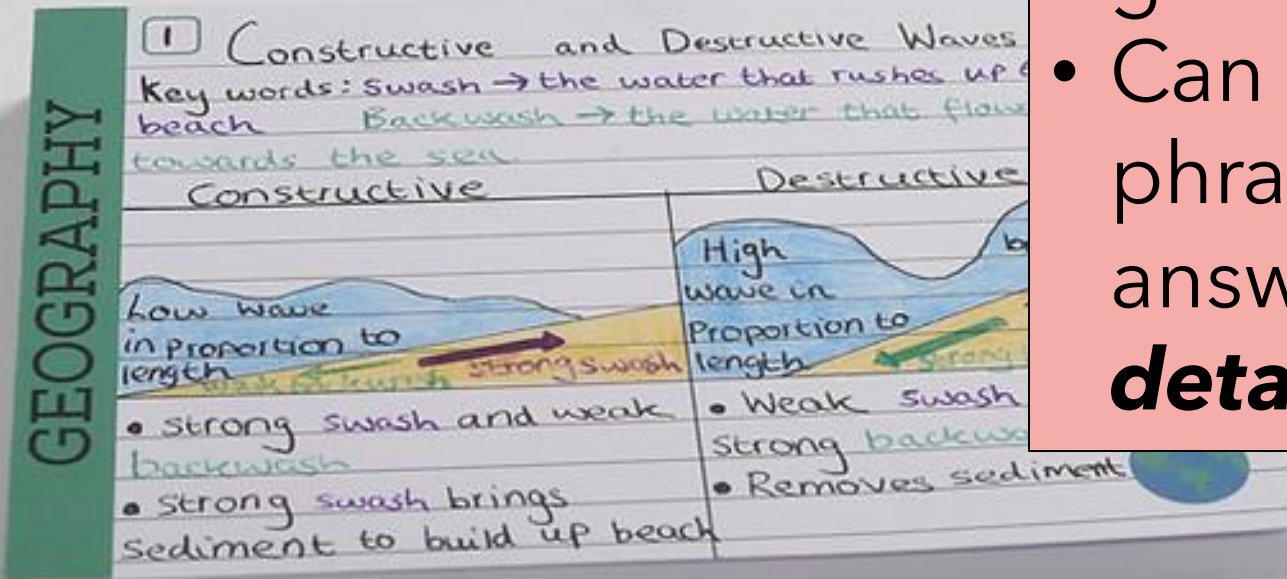 GEOGRAPHY
1 Constructive and Destructive Waves
Key words: Swash → the water that rushes up
beach Backwash → the water that flows
towards the sea.
Constructive
Low wave
in proportion to
length
weak backwash
strong swash
• strong swash and weak
backwash
• strong swash brings
sediment to build up beach
Destructive
High
wave in
Proportion to
length
strong
• Weak swash
Strong
• Removes sediment
• Can
phra
answ
deta